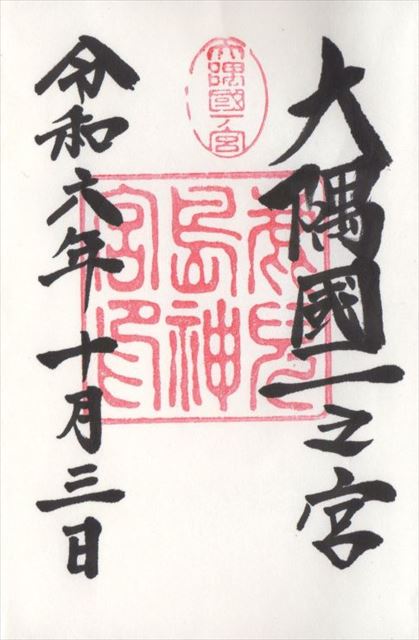 大隅國一之宮
大隅國一ノ宮
鹿兒
島神
宮印
令和六年十月三日